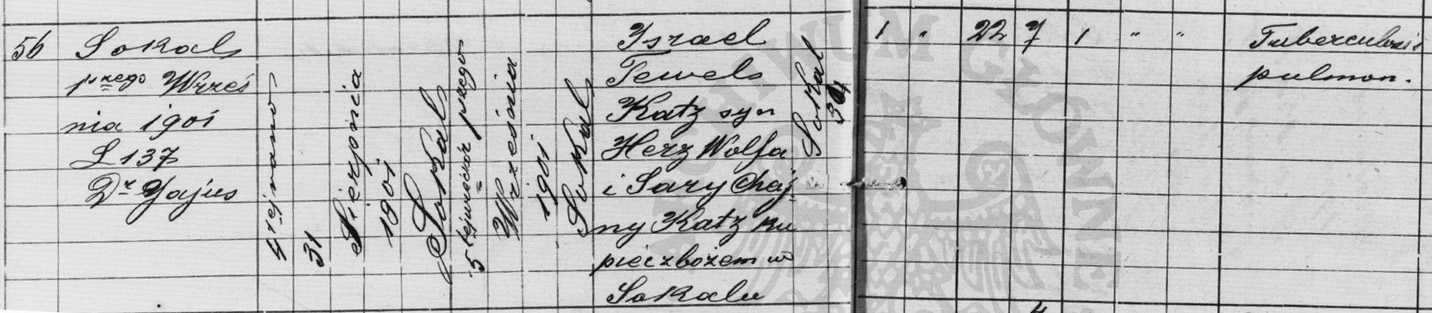 56
Sokal
1szego Wrześ
nia 1901
L 137
Dr Gajus
4tej rano
31
Sierpnia
1901
Sokal
5tej wieczór 1szego
Września
1901
Sokal
Izrael
Tewel
Katz syn
Herz Wolfa
i Sary Chaj
ny Katz ku
piec zbożem w
Sokalu
Sokal
304
1 " 22 7 1 " "
Tuberculosis
pulmon.
ARCHIWUM GŁÓWNE